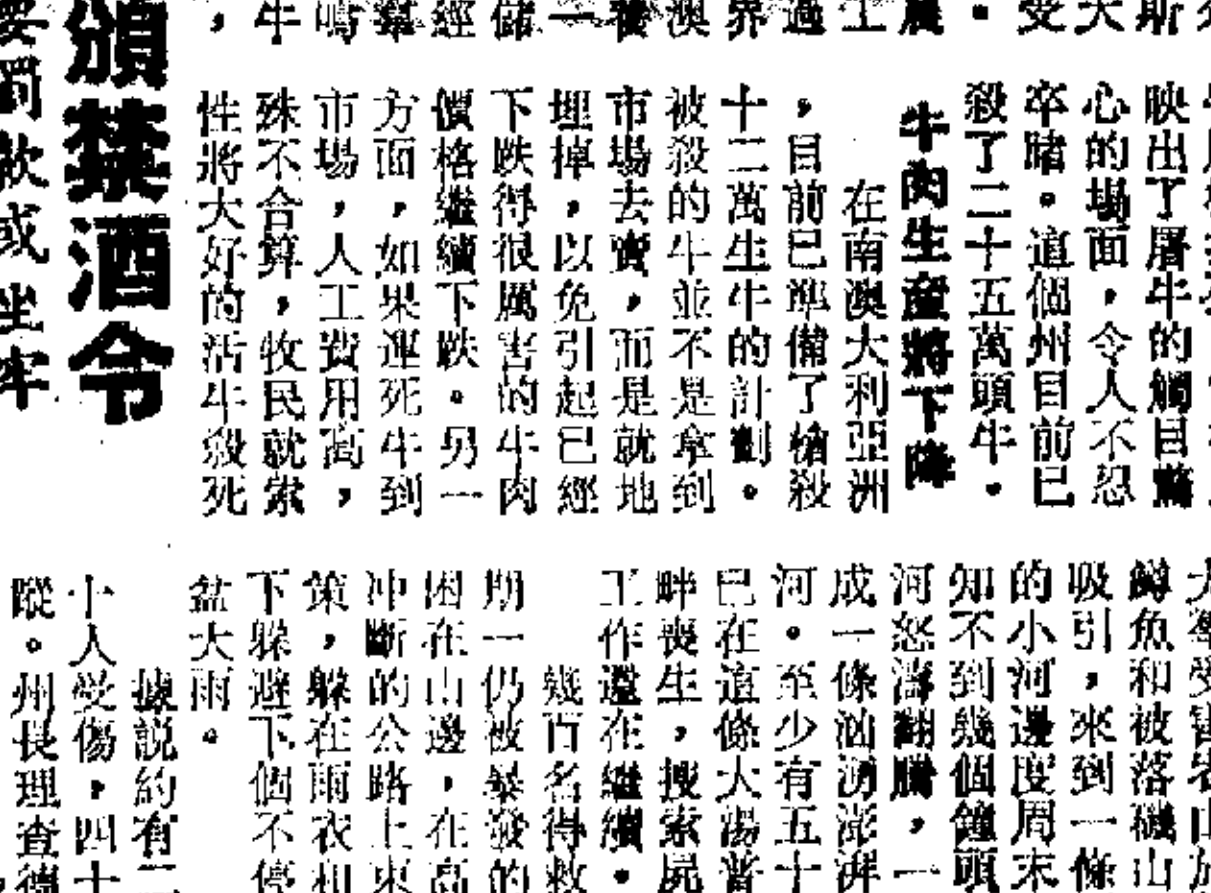 受
大
斯
農
士
過
界
澳
養
一
儲
經
羣
鳴
牛
，
映出了屠牛的觸目驚
心的場面，令人不忍
卒睹。這個州目前已
殺了二十五萬頭牛。
牛肉生產將下降
在南澳大利亞洲
，目前已準備了槍殺
十二萬生牛的計劃。
被殺的牛並不是拿到
市場去賣，而是就地
埋掉，以免引起已經
下跌得很厲害的牛肉
價格繼續下跌。另一
方面，如果運死牛到
市場，人工費用高，
殊不合算，牧民就索
性將大好的活牛殺死
頒禁酒令
要罰欵或坐牢
鱒魚和被落磯山
吸引，來到一條
的小河邊度周末
知不到幾個鐘頭
河怒濤翻騰，一
成一條汹湧澎湃
河。至少有五十
已在這條大湯普
畔喪生，搜索屍
工作還在繼續。
幾百名得救
期一仍被暴發的
困在山邊，在高
冲斷的公路上束
策，躲在雨衣和
下躲避下個不停
盆大雨。
據説約有二
十人受傷，四十
蹤。州長理查德